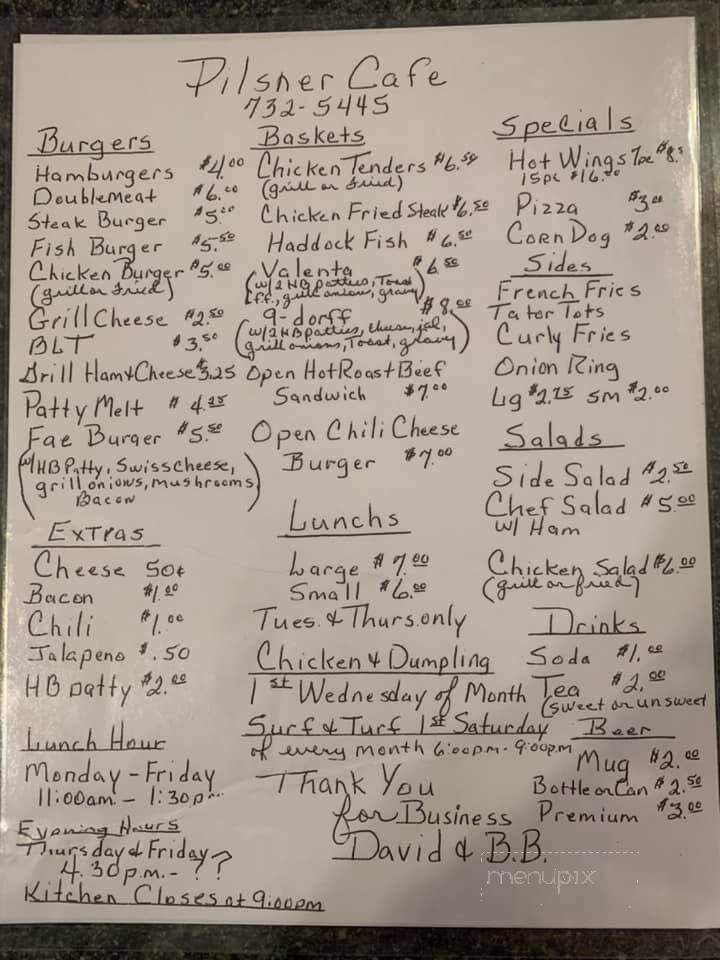 Pilsner Cafe
732-5445
Burgers
Hamburgers $4.00
Doublemeat $6.00
Steak Burger $5.00
Fish Burger $5.50
Chicken Burger $5.00
(grill or fried)
Grill Cheese $2.50
BLT $3.50
Grill Ham & Cheese $3.25
Patty Melt $4.25
Fae Burger $5.50
(w/HB Patty, Swiss cheese,
grill onions, mushrooms
Bacon)
Extras
Cheese 50¢
Bacon $1.00
Chili $1.00
Jalapeno $.50
HB patty $2.00
Lunch Hour
Monday - Friday
11:00am - 1:30pm
Evening Hours
Thursday & Friday
4:30 p.m. - ??
Kitchen Closes at 9:00pm
Baskets
Chicken Tenders $6.50
(grill or fried)
Chicken Fried Steak $6.50
Haddock Fish $6.50
Valenta $6.50
(w/2 HB patties, Toast
F.f., grill onions, gravy)
9-dorff $8.00
(w/2 HB patties, cheese, jal,
grill onions, Toast, gravy)
Open Hot Roast Beef
Sandwich $7.00
Open Chili Cheese
Burger $7.00
Lunchs
Large $7.00
Small $6.00
Tues. & Thurs. only
Chicken & Dumpling
1st Wednesday of Month
Surf & Turf 1st Saturday
of every month 6:00pm-9:00pm
Thank You
for Business
David & B.B.
Specials
Hot Wings 7pc $8.
15pc $16.00
Pizza $3.00
Corn Dog $2.00
Sides
French Fries
Tator Tots
Curly Fries
Onion Ring
Lg $2.75 sm $2.00
Salads
Side Salad $2.50
Chef Salad $5.00
w/ Ham
Chicken Salad $6.00
(grill or fried)
Drinks
Soda $1.00
Tea $2.00
(sweet or unsweet
Beer
Mug $2.00
Bottle or Can $2.50
Premium $3.00
menupix